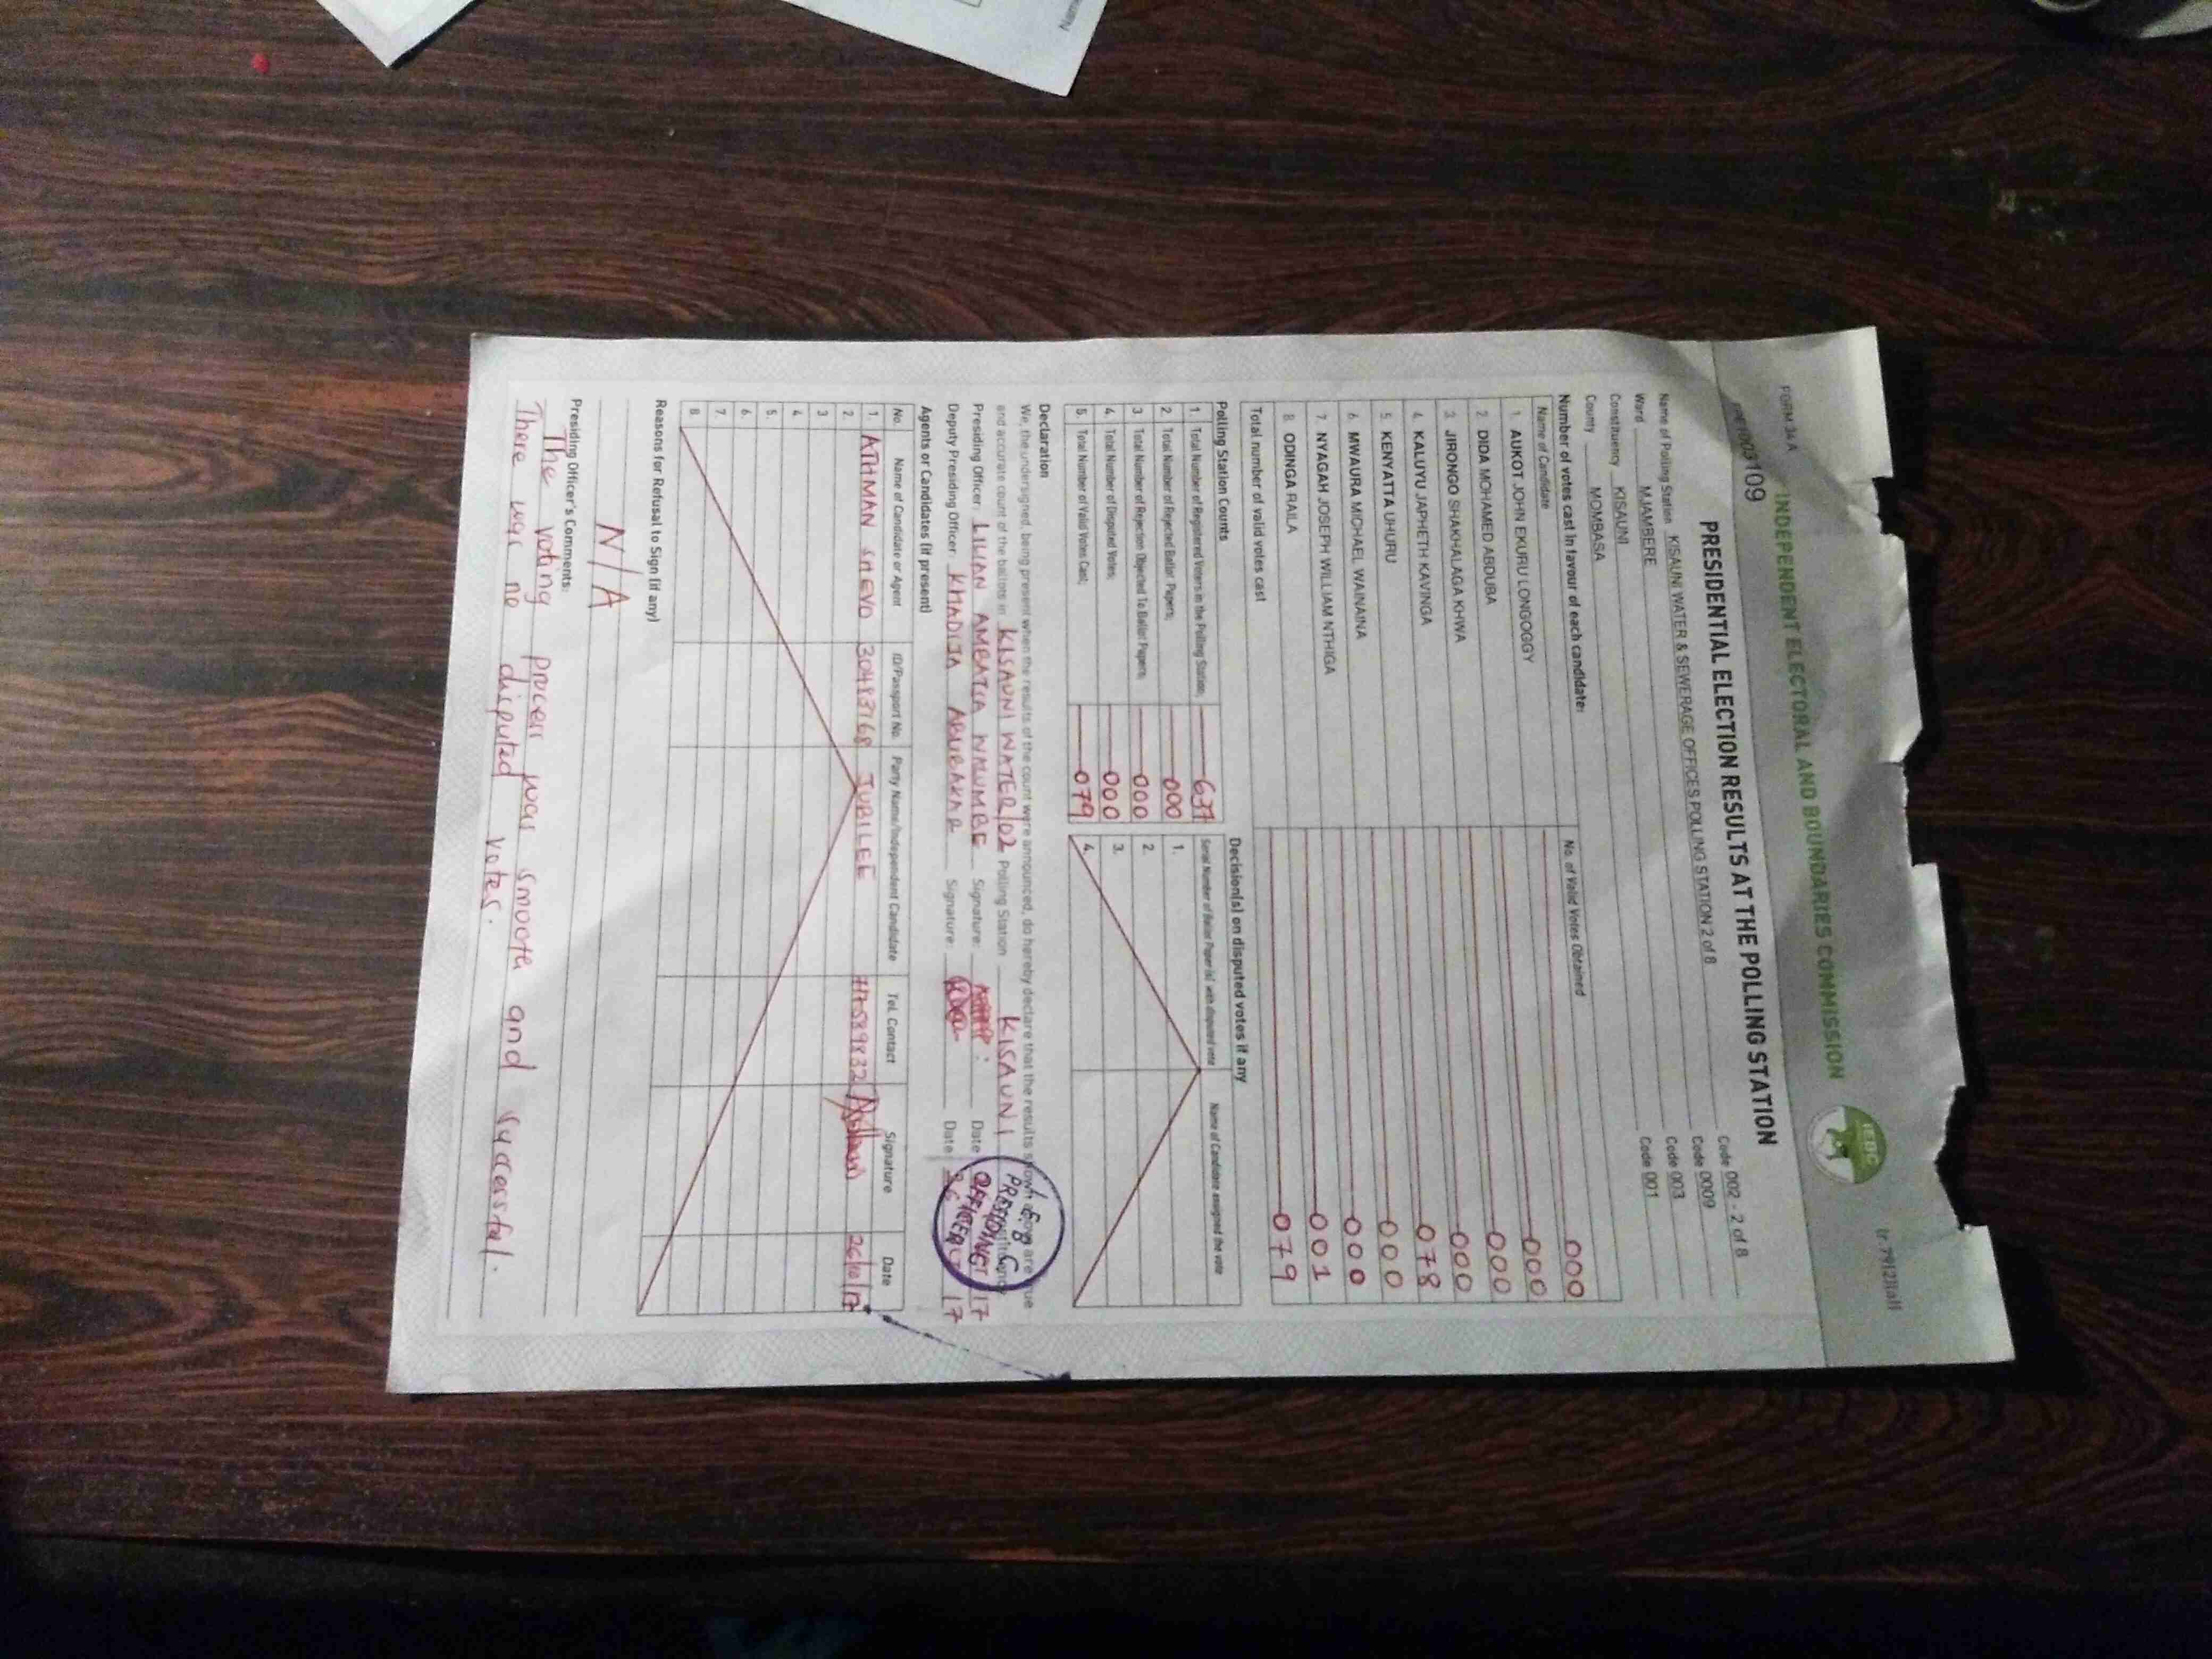 FORM 34 A
INDEPENDENT ELECTORAL AND BOUNDARIES COMMISSION
IEBC
(r.79(2)(a))
003109
PRESIDENTIAL ELECTION RESULTS AT THE POLLING STATION
Name of Polling Station KISAUNI WATER & SEWERAGE OFFICES POLLING STATION 2 of 8 Code 002 - 2 of 8
Ward MJAMBERE Code 0009
Constituency KISAUNI Code 003
County MOMBASA Code 001
Number of votes cast in favour of each candidate:
Name of Candidate No. of Valid Votes Obtained
1. AUKOT JOHN EKURU LONGOGGY 000
2. DIDA MOHAMED ABDUBA 000
3. JIRONGO SHAKHALAGA KHWA 000
4. KALUYU JAPHETH KAVINGA 000
5. KENYATTA UHURU 078
6. MWAURA MICHAEL WAINAINA 000
7. NYAGAH JOSEPH WILLIAM NTHIGA 000
8. ODINGA RAILA 001
Total number of valid votes cast 079
Polling Station Counts
1. Total Number of Registered Voters in the Polling Station; 637
2. Total Number of Rejected Ballot Papers; 000
3. Total Number of Rejection Objected To Ballot Papers; 000
4. Total Number of Disputed Votes; 000
5. Total Number of Valid Votes Cast; 079
Decision(s) on disputed votes if any
Serial Number of Ballot Paper (s) with disputed vote Name of Candidate assigned the vote
1.
2.
3.
4.
Declaration
We, the undersigned, being present when the results of the count were announced, do hereby declare that the results shown above are true
and accurate count of the ballots in KISAUNI WATER/02 Polling Station KISAUNI
Presiding Officer: LILIAN AMBATCA WALUMBE Signature: Date 17
Deputy Presiding Officer: KHADIJA ABUBAKAR Signature: Date 17
I.E.B.C
PRESIDING
OFFICER
Agents or Candidates (if present)
No. Name of Candidate or Agent ID/Passport No. Party Name/Independent Candidate Tel. Contact Signature Date
1. ATHMAN SHEVO 30483768 JUBILEE 26/10/17
2.
3
4.
5.
6.
7.
8.
Reasons for Refusal to Sign (if any)
N/A
Presiding Officer's Comments:
The voting process was smooth and successful.
There was no disputed votes.